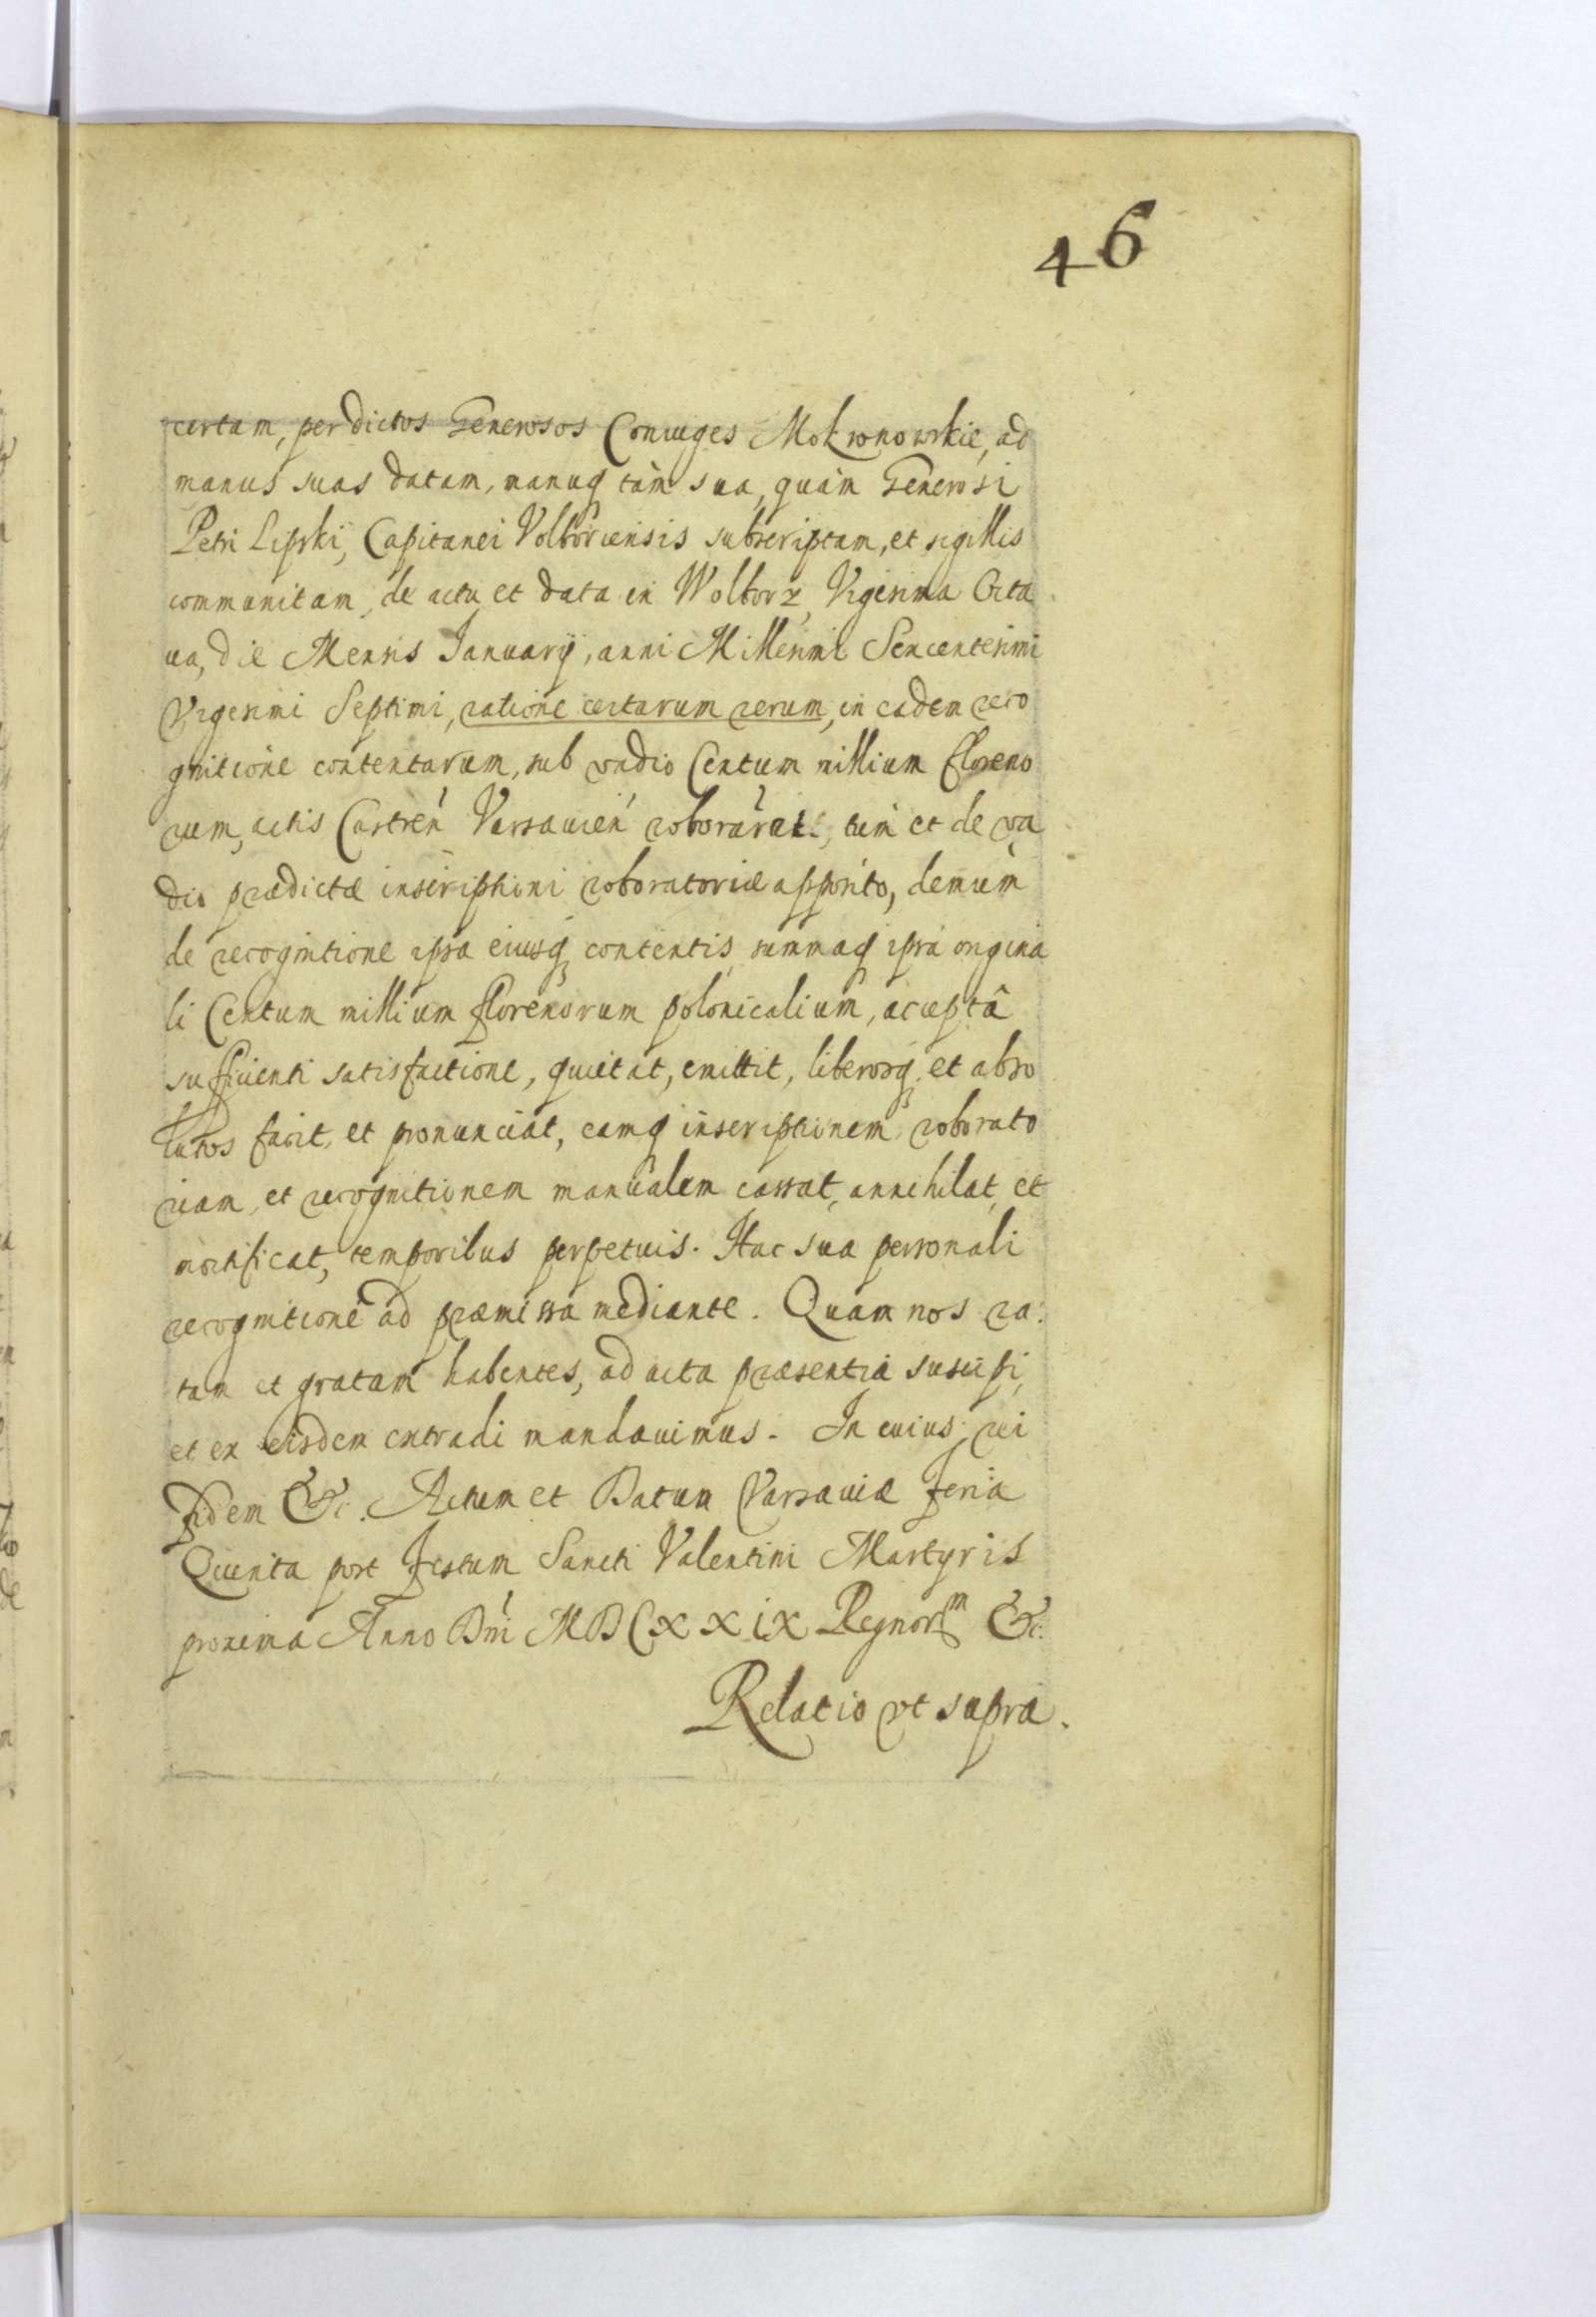 46
certam, per dictos Generosos Coniuges Mokronowskie, ad
manus suas datam, manuq tàm sua, quàm Generosi
Petri Lipskÿ, Capitanei Volboriensis subscriptam, et sigillis
communitam, de actu et data in Wolborz, Vigesima Octa
ua, die Mensis Januarÿ, anni Millesimi Sexcentesimi
Vigesimi Septimi, ratione certarum rerum, in eadem reco
gnitione contentarum, sub vadio Centum millium floreno
rum, actis Castren Varsauien roborârat, tùm et de va
dio prædictæ inscriptioni roboratoriæ apposito, demùm
de recognitione ipsa eiusq contentis summaq ipsa origina
li Centum millium florenorum polonicalium, acceptâ
sufficienti satisfactione, quietat, emittit, liberosq et abso
lutos facit, et pronunciat, eamq inscriptionem roborato
riam, et recognitionem manualem cassat, annihilat, et
mortificat, temporibus perpetuis. Hac sua personali
recognitione ad præmissa mediante. Quam nos ra
tam et gratam habentes, ad acta præsentia suscipi,
et ex eisdem extradi mandauimus. In cuius rei
fidem &c. Actum et Datum Varsauiæ feria
Quinta post festum Sancti Valentini Martyris
proxima Anno Dni MDCXXIX Regnorm &c.
Relatio vt supra.